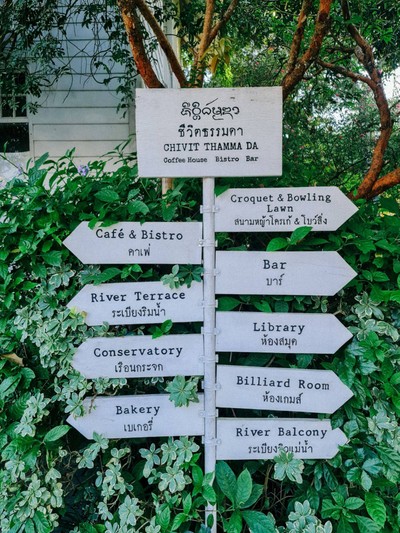 ชีวิตธรรมดา
CHIVIT THAMMA DA
Coffee House Bistro Bar
Croquet & Bowling
Lawn
สนามหญ้าโครเก้ & โบว์ลิ่ง
Café & Bistro
คาเฟ่
Bar
บาร์
River Terrace
ระเบียงริมน้ำ
Library
ห้องสมุด
Conservatory
เรือนกระจก
Billiard Room
ห้องเกมส์
Bakery
เบเกอรี่
River Balcony
ระเบียงวิวแม่น้ำ